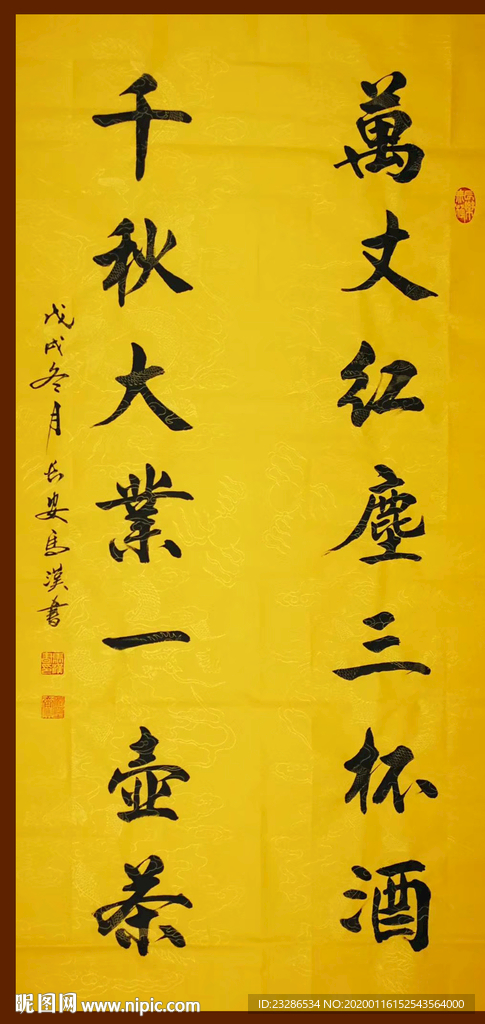 萬丈红塵三杯酒
千秋大業一壺茶
戊戌冬月長安馬漢書
昵图网 www.nipic.com
ID:23286534 NO:20200116152543564000